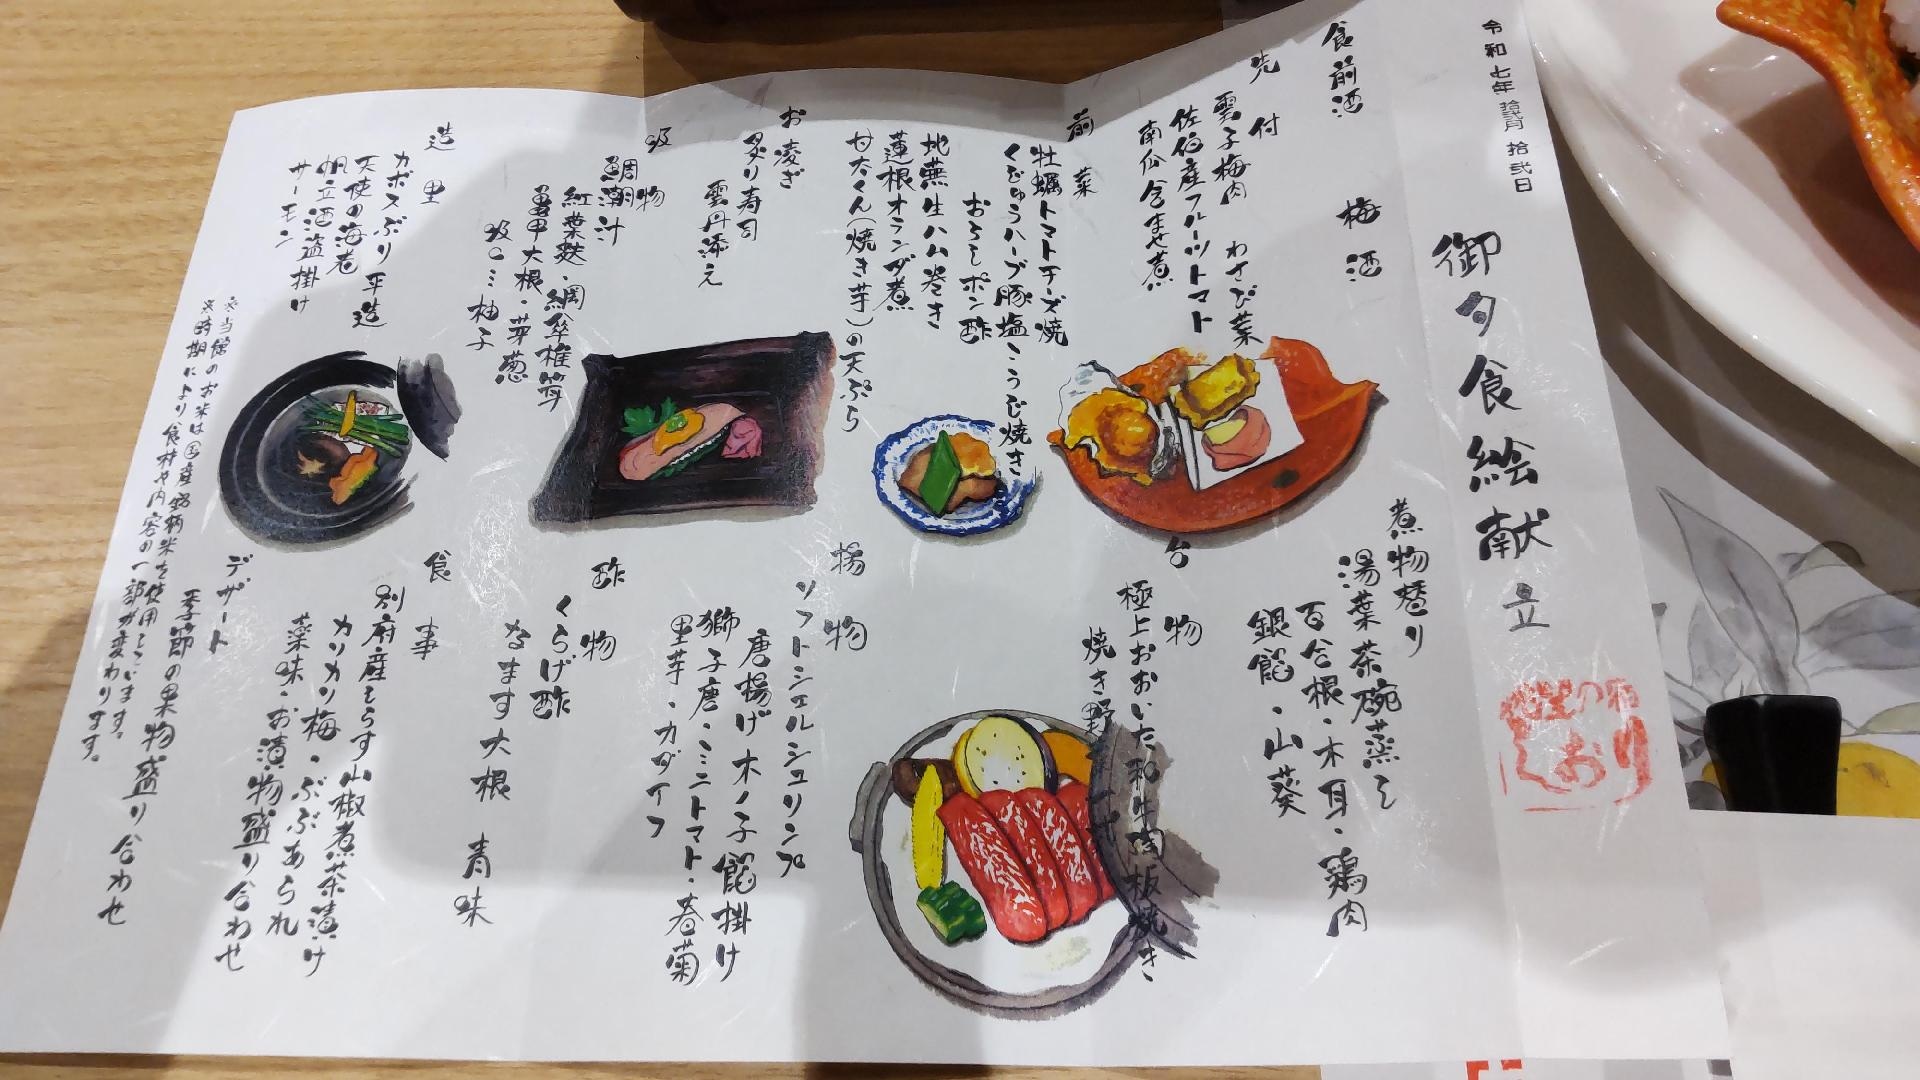 令和七年 拾弐月 拾弐日
御夕食絵献立
しおり
食前酒 梅酒
先付
雲子梅肉 わさび菜
佐伯産フルーツトマト
南瓜含ませ煮
前菜
牡蠣トマトチーズ焼
くじゅうハーブ豚塩こうじ焼き
おろしポン酢
地蕪生ハム巻き
蓮根オランダ煮
甘太くん(焼き芋)の天ぷら
お凌ぎ
炙り寿司
雲丹添え
吸物
鯛潮汁
紅葉麩・網傘椎茸
亀甲大根・芽葱
吸口…柚子
造里
カボスぶり平造
天使の海老
帆立酒盗掛け
サーモン
煮物替り
湯葉茶碗蒸し
百合根・木耳・鶏肉
銀餡・山葵
台物
極上おおいた和牛陶板焼き
焼き野菜
揚物
ソフトシェルシュリンプ
唐揚げ 木ノ子餡掛け
獅子唐・ミニトマト・春菊
里芋・カダイフ
酢物
くらげ酢
なます大根 青味
食事
別府産もらす山椒煮茶漬け
カリカリ梅・ぶぶあられ
薬味・お漬物盛り合わせ
デザート
季節の果物盛り合わせ
※当館のお米は国産銘柄米を使用しています。
※時期により食材や内容の一部が変わります。